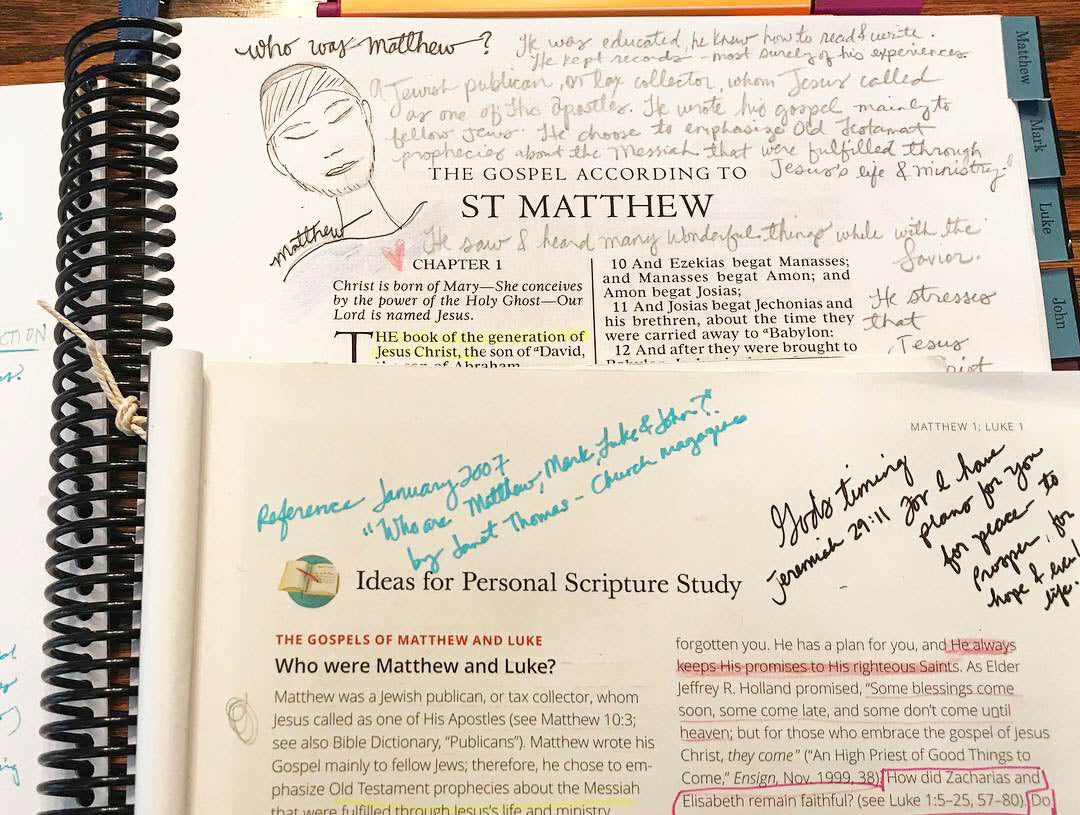 who was matthew?
He was educated, he knew how to read & write.
He kept records - most surely of his experiences.
a Jewish publican, or tax collector, whom Jesus called
as one of His apostles. He wrote his gospel mainly to
fellow Jews. He choose to emphasize Old Testamat
prophecies about the Messiah that were fulfilled through
Jesus's life & ministry!
THE GOSPEL ACCORDING TO
ST MATTHEW
Matthew
He saw & heard many wonderful things while with the
Savior.
He stresses
that
Jesus
CHAPTER 1
Christ is born of Mary—She conceives
by the power of the Holy Ghost—Our
Lord is named Jesus.
THE book of the generation of
Jesus Christ, the son of aDavid,
the son of Abraham
10 And Ezekias begat Manasses;
and Manasses begat Amon; and
Amon begat Josias;
11 And Josias begat Jechonias and
his brethren, about the time they
were carried away to aBabylon:
12 And after they were brought to
Matthew
Mark
Luke
John
CTION
MATTHEW 1; LUKE 1
Reference January 2007
"Who are Matthew, Mark, Luke & John?"
by Janet Thomas - Church magazine
God's timing
Jeremiah 29:11 For I have
plans for you
for peace to
prosper, for
hope &
life!
Ideas for Personal Scripture Study
THE GOSPELS OF MATTHEW AND LUKE
Who were Matthew and Luke?
Matthew was a Jewish publican, or tax collector, whom
Jesus called as one of His Apostles (see Matthew 10:3;
see also Bible Dictionary, “Publicans”). Matthew wrote his
Gospel mainly to fellow Jews; therefore, he chose to em-
phasize Old Testament prophecies about the Messiah
that were fulfilled through Jesus's life and ministry
forgotten you. He has a plan for you, and He always
keeps His promises to His righteous Saints. As Elder
Jeffrey R. Holland promised, “Some blessings come
soon, some come late, and some don't come until
heaven; but for those who embrace the gospel of Jesus
Christ, they come” (“An High Priest of Good Things to
Come,” Ensign, Nov. 1999, 38). How did Zacharias and
Elisabeth remain faithful? (see Luke 1:5–25, 57–80). Do